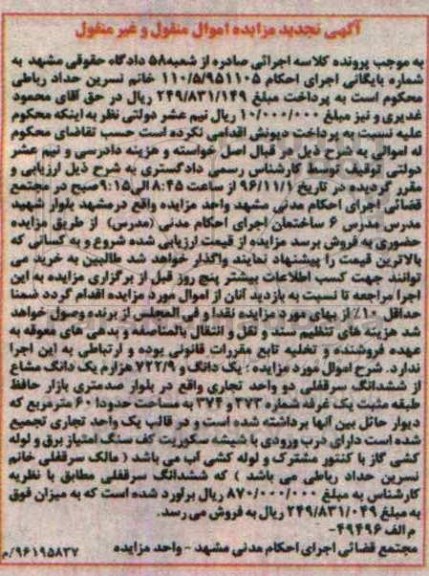 آگهی تجدید مزایده اموال منقول و غیر منقول
به موجب پرونده کلاسه اجرائی صادره از شعبه۵۸ دادگاه حقوقی مشهد به
شماره بایگانی اجرای احکام ۱۱۰/۵/۹۵۱۱۰۵ خانم نسرین حداد رباطی
محکوم است به پرداخت مبلغ ۲۴۹/۸۳۱/۱۴۹ ریال در حق آقای محمود
غدیری و نیز مبلغ ۱۰/۰۰۰/۰۰۰ ریال نیم عشر دولتی نظر به اینکه محکوم
علیه نسبت به پرداخت دیونش اقدامی نکرده است حسب تقاضای محکوم
له اموالی به شرح ذیل در قبال اصل خواسته و هزینه دادرسی و نیم عشر
دولتی توقیف توسط کارشناس رسمی دادگستری به شرح ذیل ارزیابی و
مقرر گردیده در تاریخ ۹۶/۱۱/۱ از ساعت ۸:۴۵ الی۹:۱۵صبح در مجتمع
قضائی اجرای احکام مدنی مشهد واحد مزایده واقع درمشهد بلوار شهید
مدرس مدرس ۶ ساختمان اجرای احکام مدنی (مدرس) از طریق مزایده
حضوری به فروش برسد مزایده از قیمت ارزیابی شده شروع و به کسانی که
بالاترین قیمت را پیشنهاد نمایند واگذار خواهد شد طالبین به خرید می
توانند جهت کسب اطلاعات بیشتر پنج روز قبل از برگزاری مزایده به این
اجرا مراجعه تا نسبت به بازدید آنان از اموال مورد مزایده اقدام گردد ضمنا
حداقل ۱۰٪ از بهای مورد مزایده نقدا و فی المجلس از برنده وصول خواهد
شد هزینه های تنظیم سند و نقل و انتقال بالمناصفه و بدهی های معوقه به
عهده فروشنده و تخلیه تابع مقررات قانونی بوده و ارتباطی به این اجرا
ندارد. شرح اموال مورد مزایده : یک دانگ و ۷۲۲/۹ هزارم یک دانگ مشاع
از ششدانگ سرقفلی دو واحد تجاری واقع در بلوار صدمتری بازار حافظ
طبقه مثبت یک غرفه شماره ۳۷۳ و ۳۷۴ به مساحت حدودا ۶۰ مترمربع که
دیوار حائل بین آنها برداشته شده است و در قالب یک واحد تجاری تجمیع
شده است دارای درب ورودی با شیشه سکوریت کف سنگ امتیاز برق و لوله
کشی گاز با کنتور مشترک و لوله کشی آب می باشد ( مالک سرقفلی خانم
نسرین حداد رباطی می باشد ) که ششدانگ سرقفلی مطابق با نظریه
کارشناس به مبلغ ۸۷۰/۰۰۰/۰۰۰ ریال برآورد شده است که به میزان فوق
به مبلغ ۲۴۹/۸۳۱/۰۴۹ ریال به فروش می رسد.
م الف ۴۹۴۹۶-
مجتمع قضائی اجرای احکام مدنی مشهد - واحد مزایده
۹۶۱۹۵۸۳۷/م